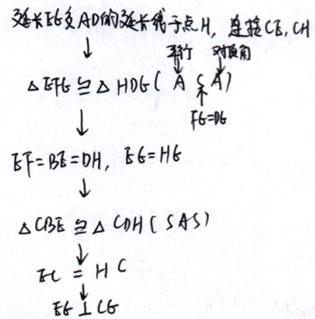 延长EG交AD的延长线于点H, 连接CE, CH
平行 对顶角
△EFG≌△HDG(ASA)
FG=DG
EF=BE=DH, EG=HG
△CBE≌△CDH(SAS)
EC=HC
EG⊥CG